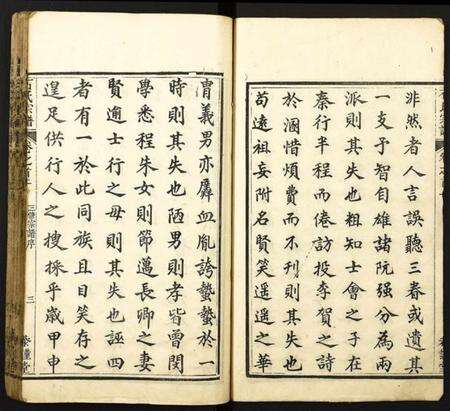 非然者人言誤聽三春或遺其
一支予智自雄諸阮强分為兩
派則其失也粗知士會之子在
秦行半程而倦訪投李賀之詩
於溷惜煩費而不刊則其失也
苟遠祖妄附名賢笑遥遥之華
胄義男亦羼血胤誇蟄蟄於一
時則其失也陋男則孝皆曾閔
學悉程朱女則節邁長卿之妻
賢逾士行之母則其失也誣四
者有一於此同族且目笑存之
遑足供行人之搜採乎歲甲申
氏宗譜
三